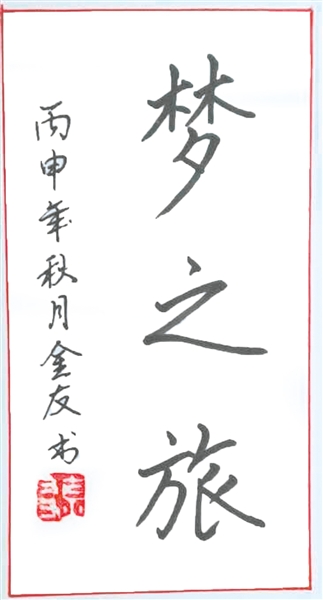 梦之旅
丙申年秋月金友书